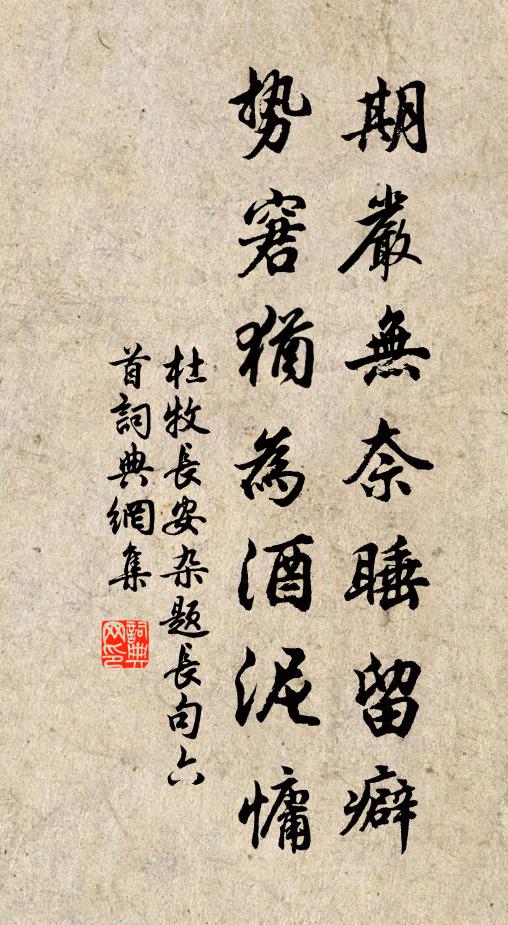 期嚴無奈睡留癖
势窘猶為酒泥慵
杜牧長安杂題長句六
首詞典網集
詞典
网印